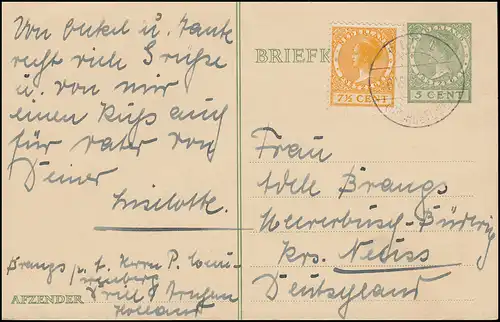 Von Onkel u. Tante
recht viele Grüße
u. von mir
einen Kuß auch
für Vater von
Deiner
Liselotte.
Brangs p. A. Herrn P.
Holland
AFZENDER
BRIEFK
NEDERLAND
7½ CENT
NEDERLAND
5 CENT
Frau
Adele Brangs
Meererbusch-Büderich
Krs. Neuss
Deutschland